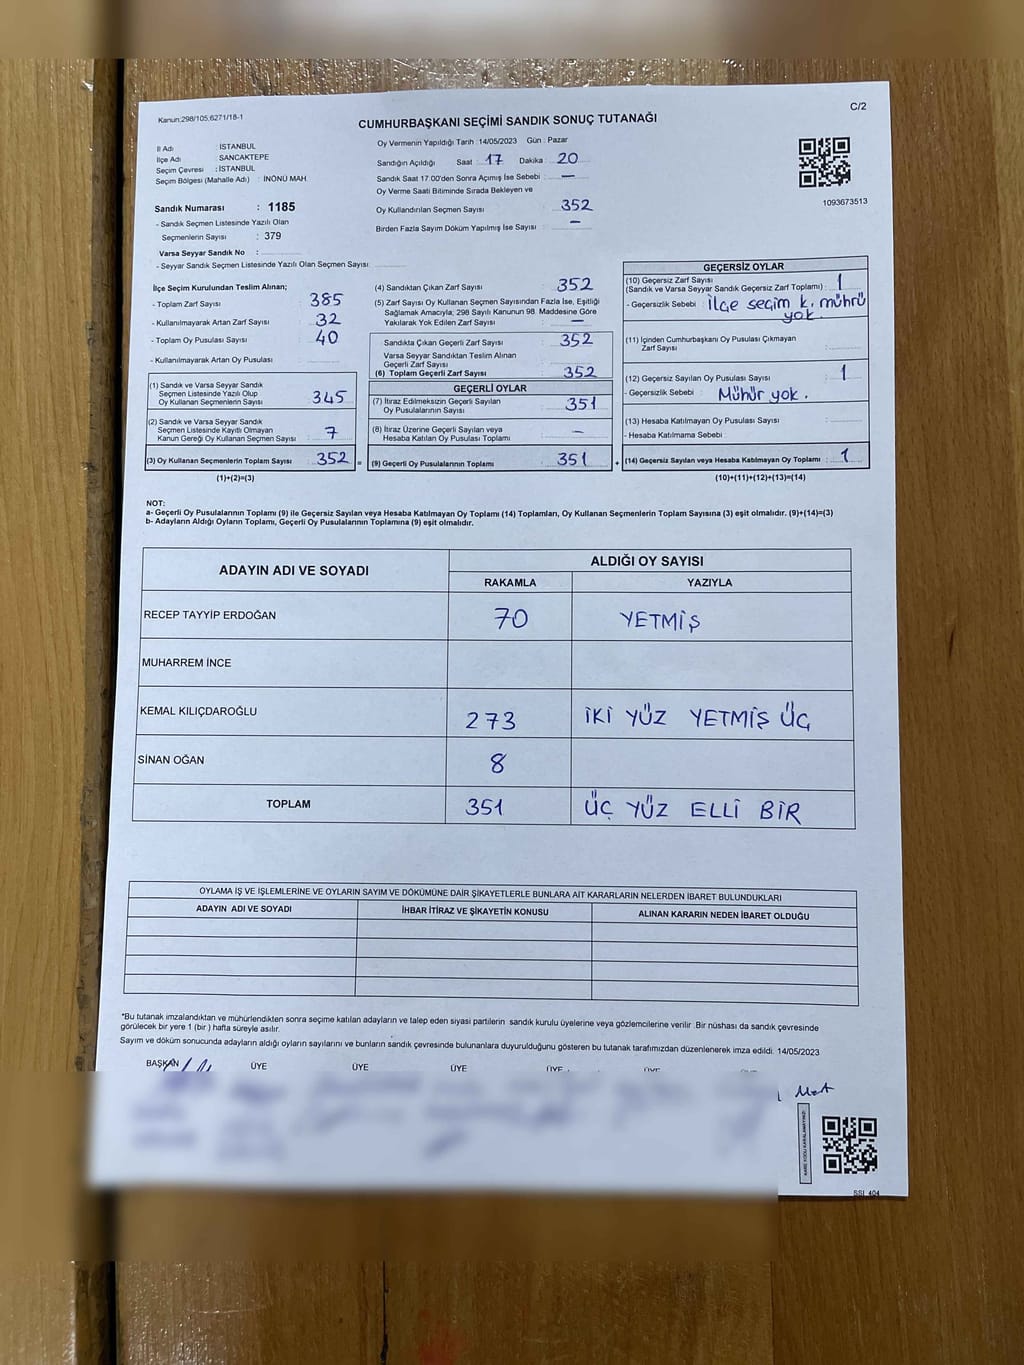 Kanun:298/105;6271/18-1
C/2
CUMHURBAŞKANI SEÇİMİ SANDIK SONUÇ TUTANAĞI
İl Adı : İSTANBUL
İlçe Adı : SANCAKTEPE
Seçim Çevresi : İSTANBUL
Seçim Bölgesi (Mahalle Adı) : İNÖNÜ MAH.
Sandık Numarası : 1185
- Sandık Seçmen Listesinde Yazılı Olan
Seçmenlerin Sayısı : 379
Varsa Seyyar Sandık No :
- Seyyar Sandık Seçmen Listesinde Yazılı Olan Seçmen Sayısı
Oy Vermenin Yapıldığı Tarih : 14/05/2023 Gün : Pazar
Sandığın Açıldığı Saat : 17 Dakika : 20
Sandık Saat 17:00'den Sonra Açımış İse Sebebi : —
Oy Verme Saati Bitiminde Sırada Bekleyen ve
Oy Kullandırılan Seçmen Sayısı 352
Birden Fazla Sayım Döküm Yapılmış İse Sayısı : —
1093673513
İlçe Seçim Kurulundan Teslim Alınan;
- Toplam Zarf Sayısı : 385
- Kullanılmayarak Artan Zarf Sayısı : 32
- Toplam Oy Pusulası Sayısı : 40
- Kullanılmayarak Artan Oy Pusulası
(1) Sandık ve Varsa Seyyar Sandık
Seçmen Listesinde Yazılı Olup
Oy Kullanan Seçmenlerin Sayısı : 345
(2) Sandık ve Varsa Seyyar Sandık
Seçmen Listesinde Kayıtlı Olmayan
Kanun Gereği Oy Kullanan Seçmen Sayısı : 7
(3) Oy Kullanan Seçmenlerin Toplam Sayısı : 352 =
(1)+(2)=(3)
(4) Sandıktan Çıkan Zarf Sayısı : 352
(5) Zarf Sayısı Oy Kullanan Seçmen Sayısından Fazla İse, Eşitliği
Sağlamak Amacıyla; 298 Sayılı Kanunun 98. Maddesine Göre
Yakılarak Yok Edilen Zarf Sayısı : —
Sandıkta Çıkan Geçerli Zarf Sayısı : 352
Varsa Seyyar Sandıktan Teslim Alınan
Geçerli Zarf Sayısı :
(6) Toplam Geçerli Zarf Sayısı : 352
GEÇERLİ OYLAR
(7) İtiraz Edilmeksizin Geçerli Sayılan
Oy Pusulalarının Sayısı : 351
(8) İtiraz Üzerine Geçerli Sayılan veya
Hesaba Katılan Oy Pusulası Toplamı : —
(9) Geçerli Oy Pusulalarının Toplamı : 351 +
GEÇERSİZ OYLAR
(10) Geçersiz Zarf Sayısı
(Sandık ve Varsa Seyyar Sandık Geçersiz Zarf Toplamı) : 1
- Geçersizlik Sebebi : İlçe seçim k. mührü
yok.
(11) İçinden Cumhurbaşkanı Oy Pusulası Çıkmayan
Zarf Sayısı :
(12) Geçersiz Sayılan Oy Pusulası Sayısı : 1
- Geçersizlik Sebebi : Mühür yok.
(13) Hesaba Katılmayan Oy Pusulası Sayısı :
- Hesaba Katılmama Sebebi :
(14) Geçersiz Sayılan veya Hesaba Katılmayan Oy Toplamı : 1
(10)+(11)+(12)+(13)=(14)
NOT:
a- Geçerli Oy Pusulalarının Toplamı (9) ile Geçersiz Sayılan veya Hesaba Katılmayan Oy Toplamı (14) Toplamları, Oy Kullanan Seçmenlerin Toplam Sayısına (3) eşit olmalıdır. (9)+(14)=(3)
b- Adayların Aldığı Oyların Toplamı, Geçerli Oy Pusulalarının Toplamına (9) eşit olmalıdır.
ADAYIN ADI VE SOYADI ALDIĞI OY SAYISI
RAKAMLA YAZIYLA
RECEP TAYYİP ERDOĞAN 70 YETMİŞ
MUHARREM İNCE
KEMAL KILIÇDAROĞLU 273 İKİ YÜZ YETMİŞ ÜÇ
SİNAN OĞAN 8
TOPLAM 351 ÜÇ YÜZ ELLİ BİR
OYLAMA İŞ VE İŞLEMLERİNE VE OYLARIN SAYIM VE DÖKÜMÜNE DAİR ŞİKAYETLERLE BUNLARA AİT KARARLARIN NELERDEN İBARET BULUNDUKLARI
ADAYIN ADI VE SOYADI İHBAR İTİRAZ VE ŞİKAYETİN KONUSU ALINAN KARARIN NEDEN İBARET OLDUĞU
*Bu tutanak imzalandıktan ve mühürlendikten sonra seçime katılan adayların ve talep eden siyasi partilerin sandık kurulu üyelerine veya gözlemcilerine verilir .Bir nüshası da sandık çevresinde
görülecek bir yere 1 (bir ) hafta süreyle asılır.
Sayım ve döküm sonucunda adayların aldığı oyların sayılarını ve bunların sandık çevresinde bulunanlara duyurulduğunu gösteren bu tutanak tarafımızdan düzenlenerek imza edildi. 14/05/2023
BAŞKAN ÜYE ÜYE ÜYE ÜYE ÜYE ÜYE
KARE KODU KARALAMAYINIZ!
SSI_404